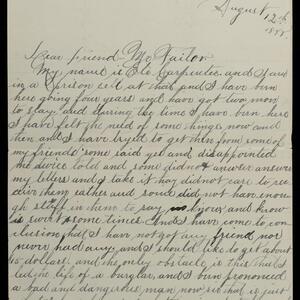 August 12th
188
Dear friend Mr Tailor
My name is Geo. Carpenter and I am
in a Prison cell at that and I have bin
here going four years and have got two more
to stay and during the time I have bin here
I have felt the need of some things now and
then and I have tryed to get them from some of
my friends some said yes and disappointed
the advice told and some did not answer
my letters and I take it they did not care to re
cive them eather and some did not have enough
stuff in them to say no
is over to some times and I have come to con
clusion that I have not got any friend nor
never had any and I should like to get about
15 dollars and the only obstacle is this that I
the life of a burglar and bin pronounced
a bad and dangerous man now